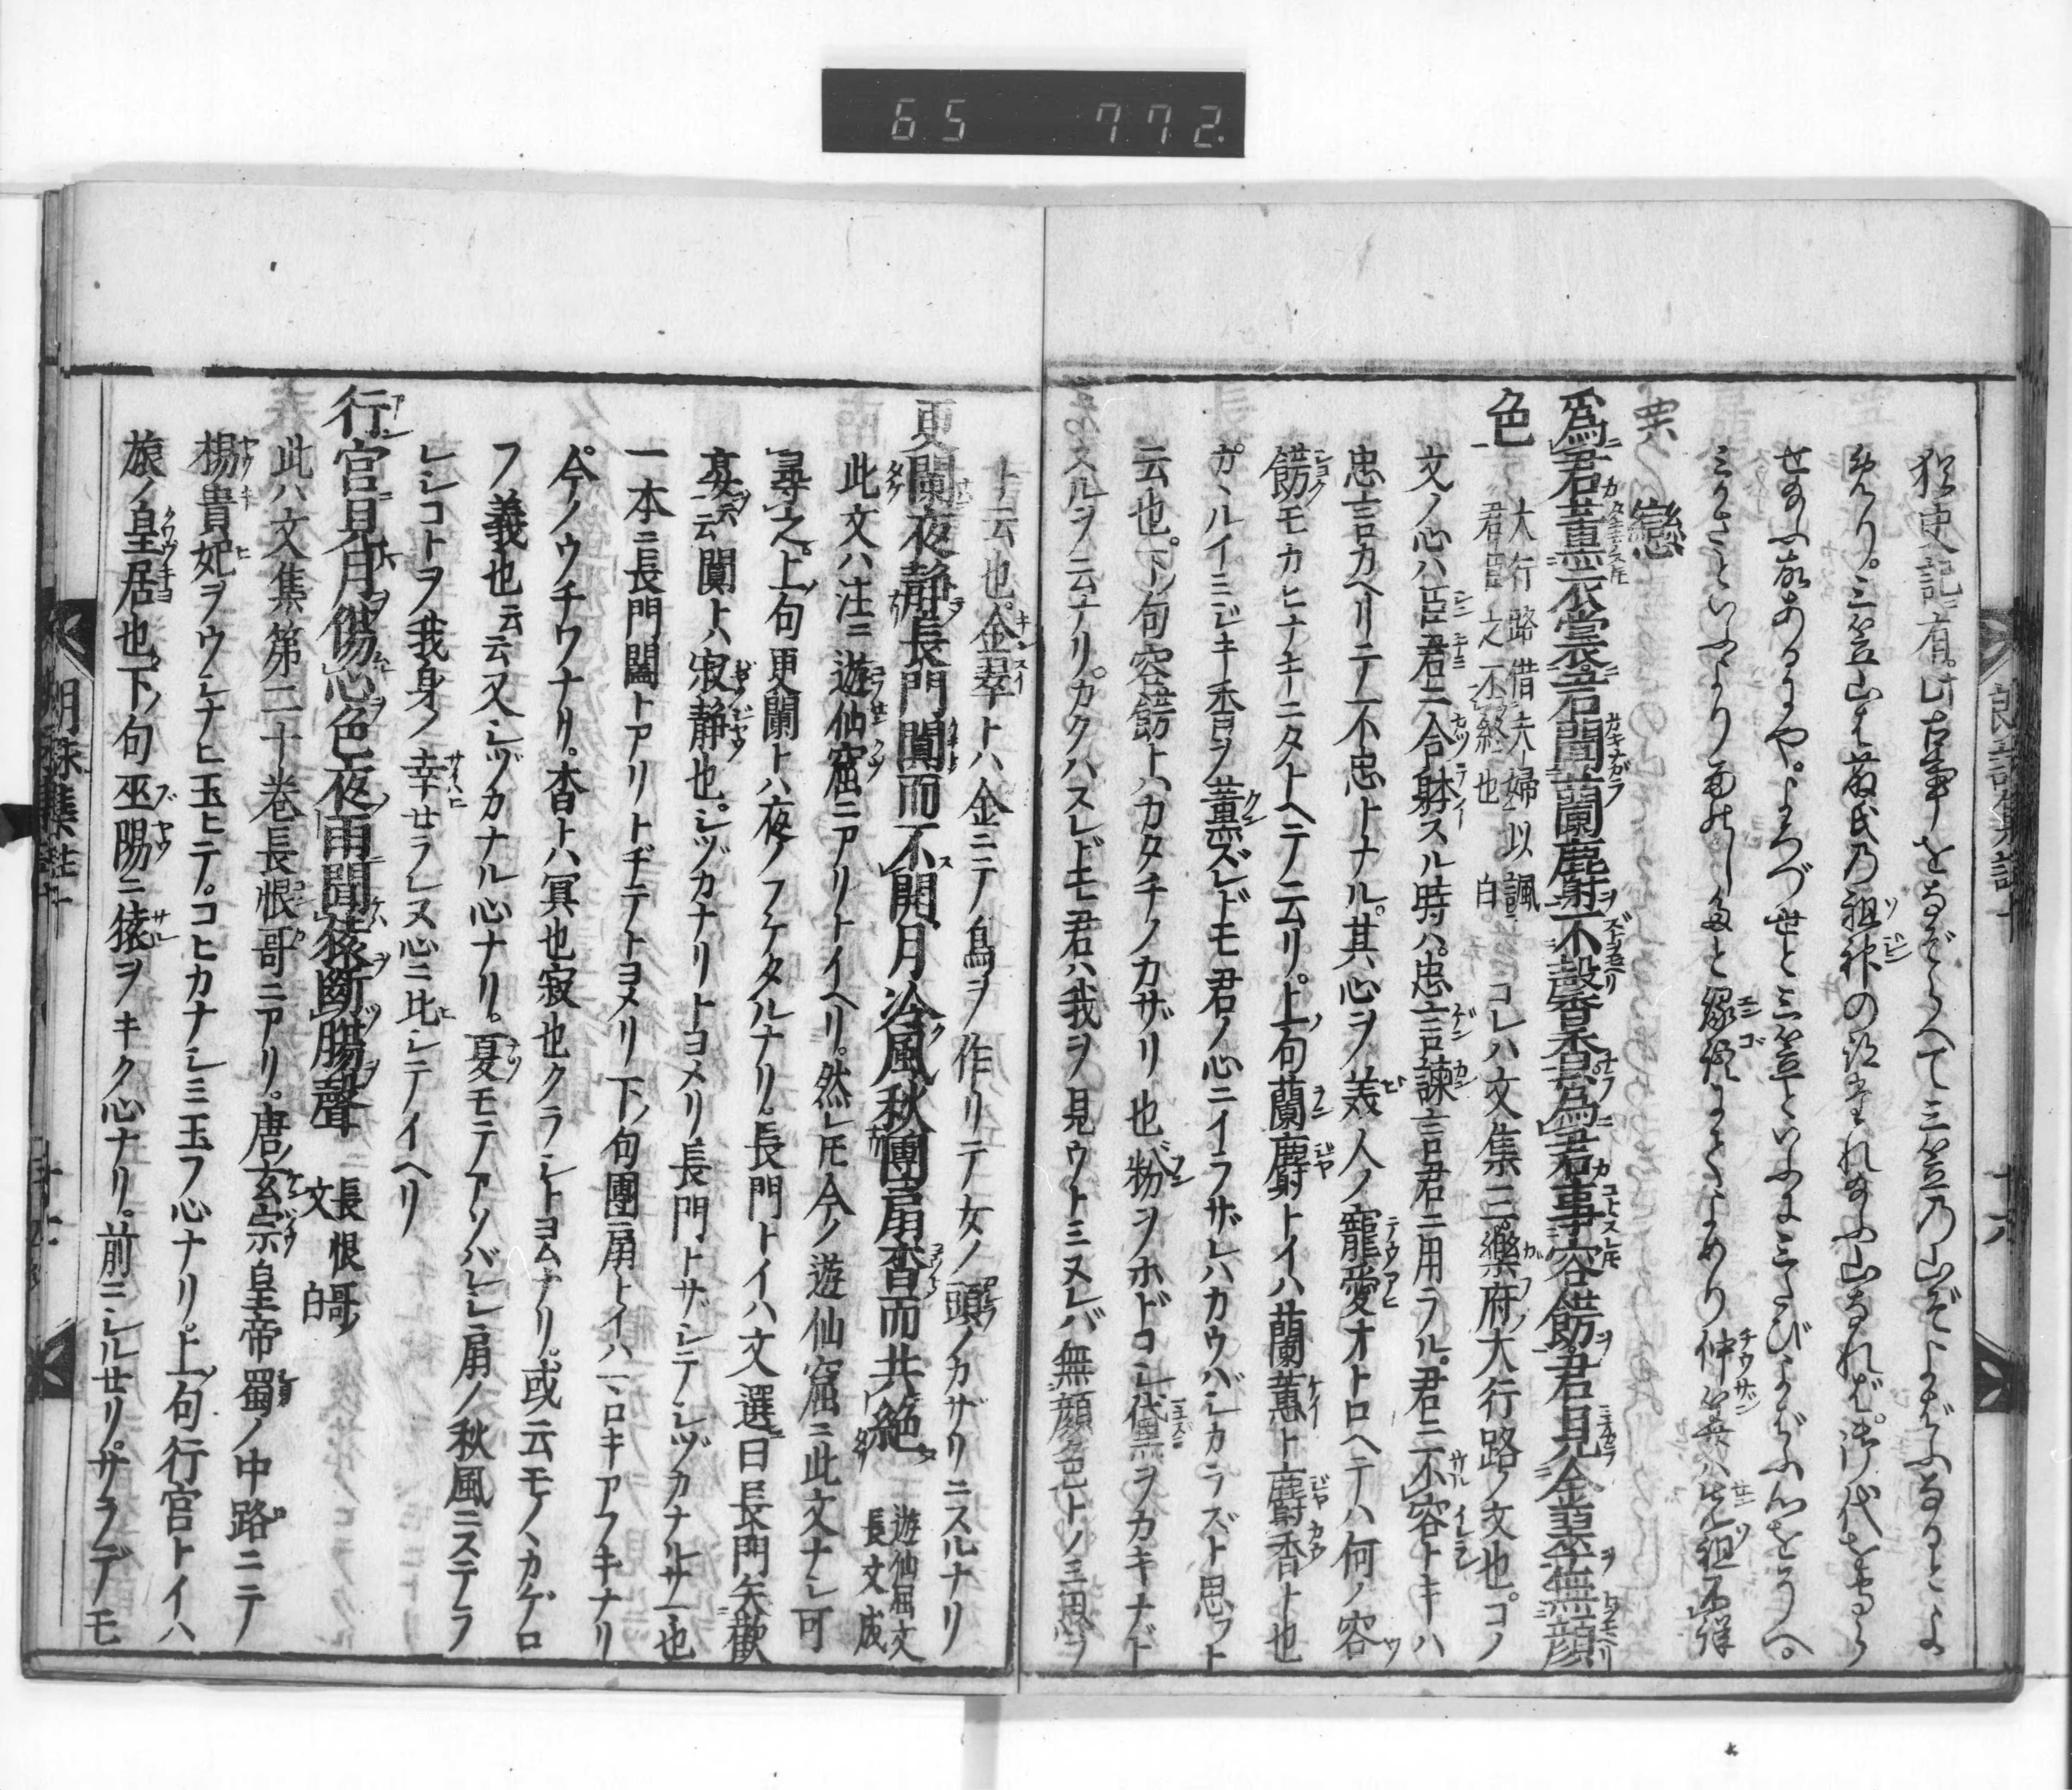 65 772.
松史記ニ有。此古事をなぞらへて三笠乃山ぞよばふなるとよ
めり。三笠山は藤氏乃祖神の跡をたれ給ふ山なれば。御代をまもら
せ給ふ故あるにや。よろづ世と三笠といふよりよばふ心をそへ。
三かさといふより
戀
爲君薫衣裳君聞蘭麝不馨香爲君事容餝君見金翠無顔
色 大行路借夫婦以諷君臣之不終也 白 コレハ文集三樂府大行路ノ文也。コノ
文ノ心ハ臣君ニ合躰スル時ハ。忠言諫言君ニ用ラル。君ニ不容トキハ
忠言カヘリテ不忠トナル。其心ヲ美人ノ寵愛オトロヘテハ何ノ容
餝モカヒナキニタトヘテノ云リ。上句蘭麝トイハ蘭蕙ト麝香ト也
ガヽルイミジキ香ヲ薫ズレドモ君ノ心ニイラザレハカウハシカラズト思フト
云也。下句容餝トハカタチノカザリ也粉ヲホドコシ黛ヲカキナド
スルヲ云ナリ。カクハスレドモ君ハ我ヲ見ウトミヌレバ無顔色トノ玉思フ
ト云也。金翠トハ金ニテ鳥ヲ作リテ女ノ頭ノカザリニスルナリ
更闌夜静長門闃而不開月冷風秋團扇杳而共絶 遊仙窟文 長文成
此文ハ注ニ遊仙窟ニアリトイヘリ。然レ𪜈今ノ遊仙窟ニ此文ナシ可
尋之。上句更闌トハ夜ノフケタルナリ。長門トイハ文選曰長門矢歡
云云闃トハ寂静也。シヅカナリトヨメリ長門トザシテシヅカナルサマ也
一本ニ長門闔トアリトヂテトヨメリ下句團扇トイハマロキアフキナリ
今ノウチワナリ。杳トハ冥也寂也クラシトヨムナリ。或云モノヽカゲロ
フ義也云云又シヅカナル心ナリ。夏モテアソバレシ扇ノ秋風ニステラ
レシコトヲ我身ノ幸セラレヌ心ニ比シテイヘリ
行宮見月傷心色夜雨聞猿斷膓聲 長恨哥ノ文 白
此ハ文集第二十巻長恨哥ニアリ。唐玄宗皇帝蜀ノ中路ニテ
楊貴妃ヲウシナヒ玉ヒテ。コヒカナシミ玉フ心ナリ。上句行宮トイハ
旅ノ皇居也。下句巫陽ニ猿ヲキク心ナリ。前ニシルセリ。サラデモ